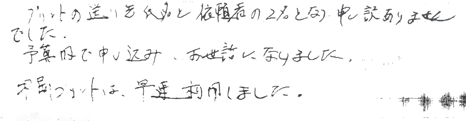 プリントの送り主氏名と依頼者の2名となり申し訳ありません
でした.
予算内で申し込み、お世話になりました.
プリントは、早速利用しました.